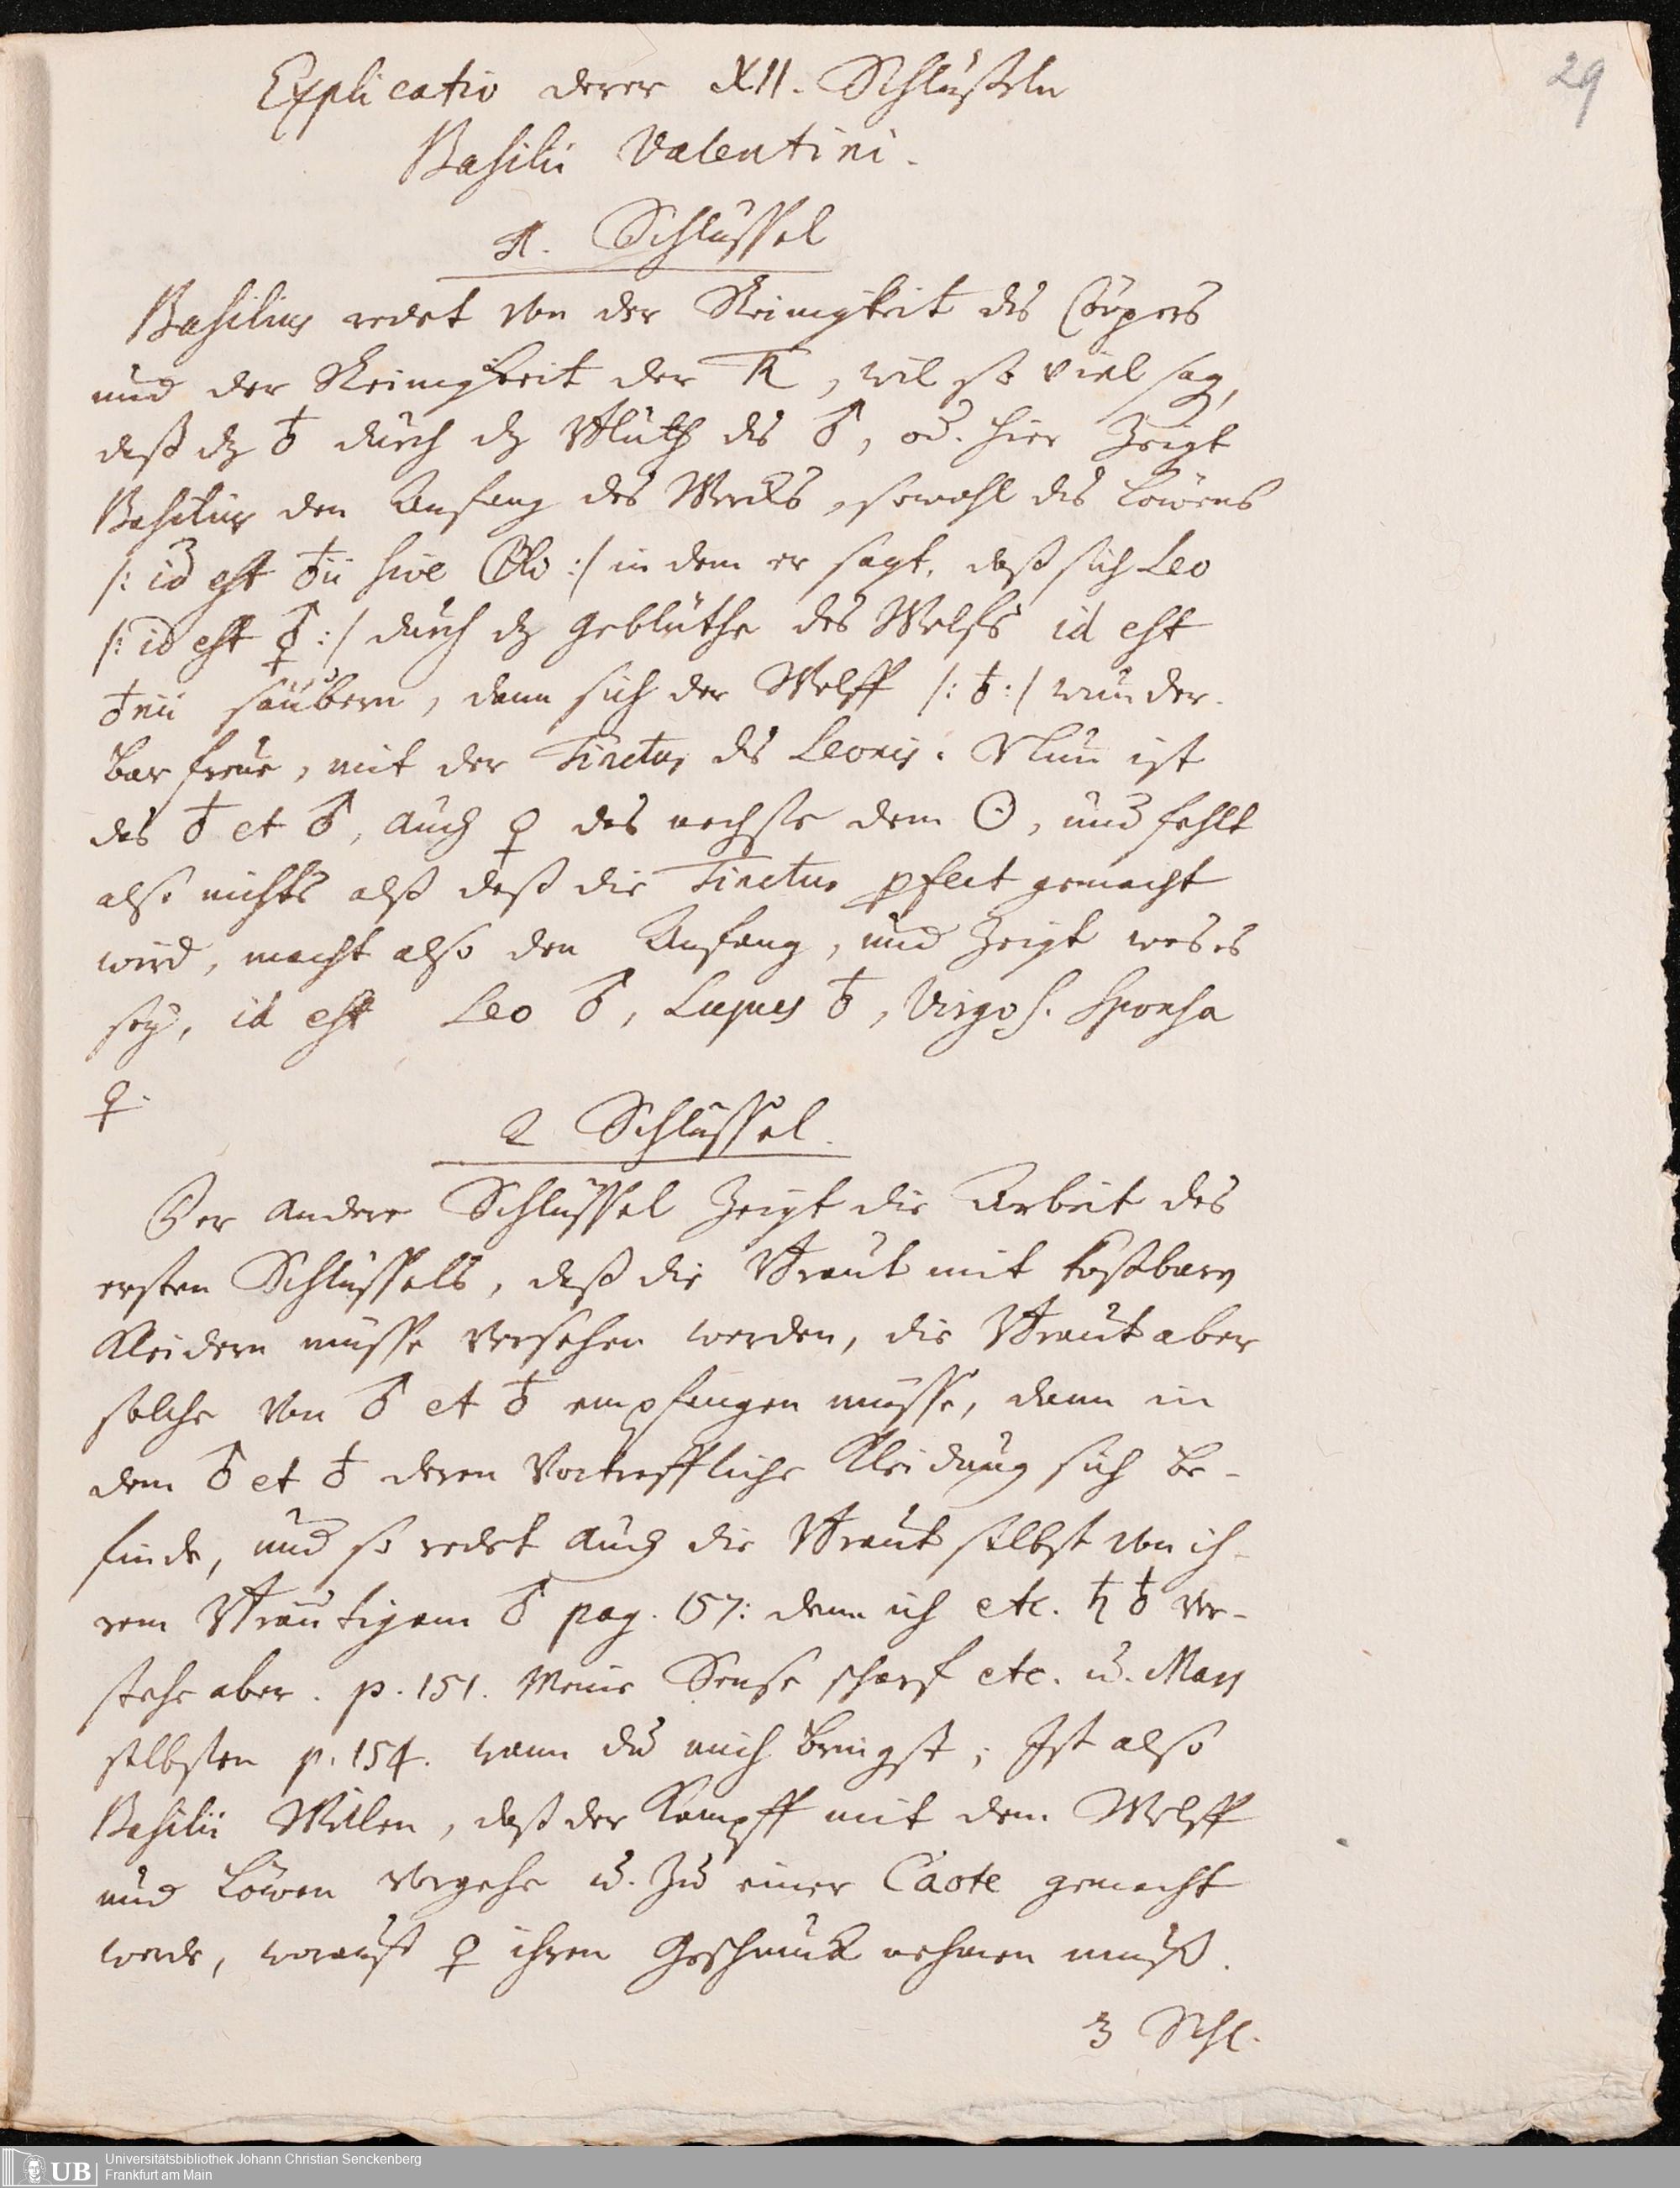 29
Explicatio derer XII. Schlüßeln
Basilii Valentini.
1. Schlüssel
Basilius redet von der Reinigkeit des Cörpers
und der Reinigkeit der , wil so viel sag,
daß dz ♁ durch dz Bluth des ♂, od. hier Zeigt
Basilius den Anfang des Wercks, sowohl des Löwens
/: id est ♁ii sive :/ in dem er sagt, daß sich Leo
/: id est :/ durch dz geblüthe des Wolfs id est
♁nii säubern, dann sich der Wolff /: ♁ :/ wunder-
bar freue, mit der Tinctur des Leonis. Nun ist
das ♁ et ♂, auch ♀ das nechste dem ☉, und fehlt
also nichts alß daß die Tinctur pfect gemacht
wird, macht also den Anfang, und Zeigt was es
sey, id est Leo ♂, Lupus ♁, Virgo s. Sponsa
♀.
2 Schlüssel.
Der andere Schlüssel Zeigt die Arbeit des
ersten Schlüssels, daß die Braut mit kostbarn
Kleidern müsse versehen werden, die Braut aber
solche von ♂ et ♁ empfangen müsse, dann in
dem ♂ et ♁ deren vortreffliche Kleidung sich be-
finde, und so redet auch die Braut selbst von ih-
rem Bräutigam ♂ pag. 157: denn ich etc. ♄ ♁ ver-
stehe aber. p. 151. Meine Sense scharf etc. u. Mars
selbsten p. 154. wann du mich bringst; Ist also
Basilii Willen, daß der Kampff mit dem Wolff
und Löwen vergehe u. zu einer gemacht
werde, worauß ♀ ihren Geschmuck nehmen muß.
3 Schl.
UB Universitätsbibliothek Johann Christian Senckenberg
Frankfurt am Main